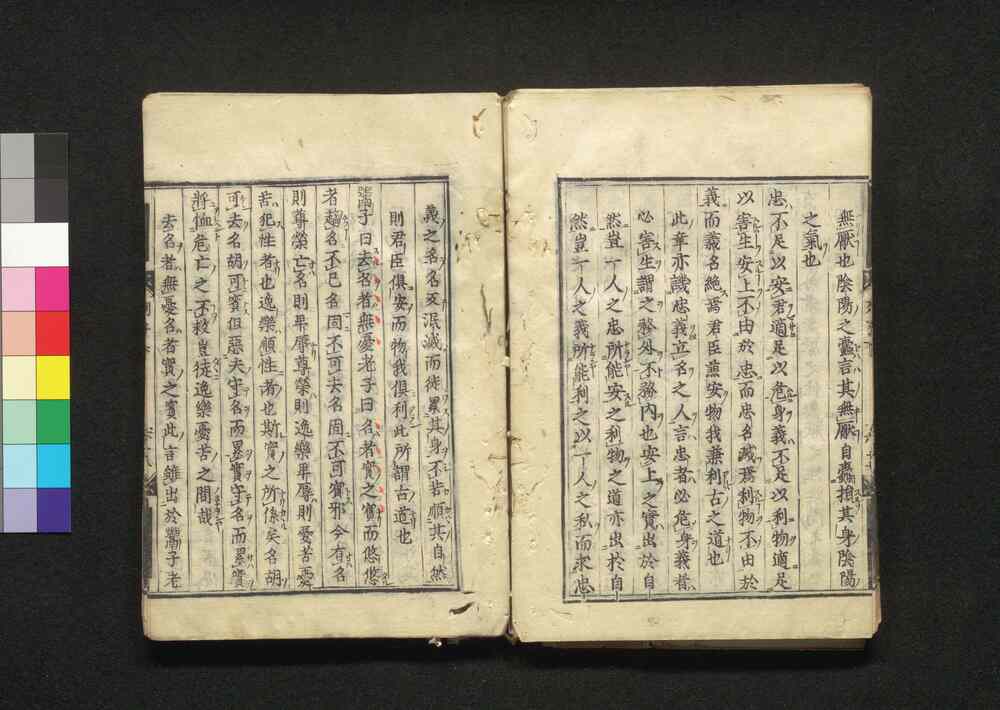 無厭也陰陽之蠹言其無厭自蠹損其身陰陽
之氣也
忠不足以安君適足以危身義不足以利物適足
以害生安上不由於忠而忠名滅焉利物不由於
義而義名絶焉君臣兼安物我兼利古之道也
此章亦譏忠義立名之人言忠者必危身義者
必害生謂之務外不務内也安上之實出於自
然豈一人之忠所能安之利物之道亦出於自
然豈一人之義所能利之以一人之私而求忠
義之名名又泯滅而徒累其身不若順其自然
則君臣俱安而物我俱利此所謂古道也
鬻子曰去名者無憂老子曰名者實之賓而悠悠
者趨名不已名固不可去名固不可賓邪今有名
則尊榮亡名則卑辱尊榮則逸樂卑辱則憂苦憂
苦犯性者也逸樂順性者也斯實之所係矣名胡
可去名胡可賓但惡夫守名而累實守名而累實
將恤危亡之不救豈徒逸樂憂苦之間哉
去名者無憂名者實之賓此言雖出於鬻子老